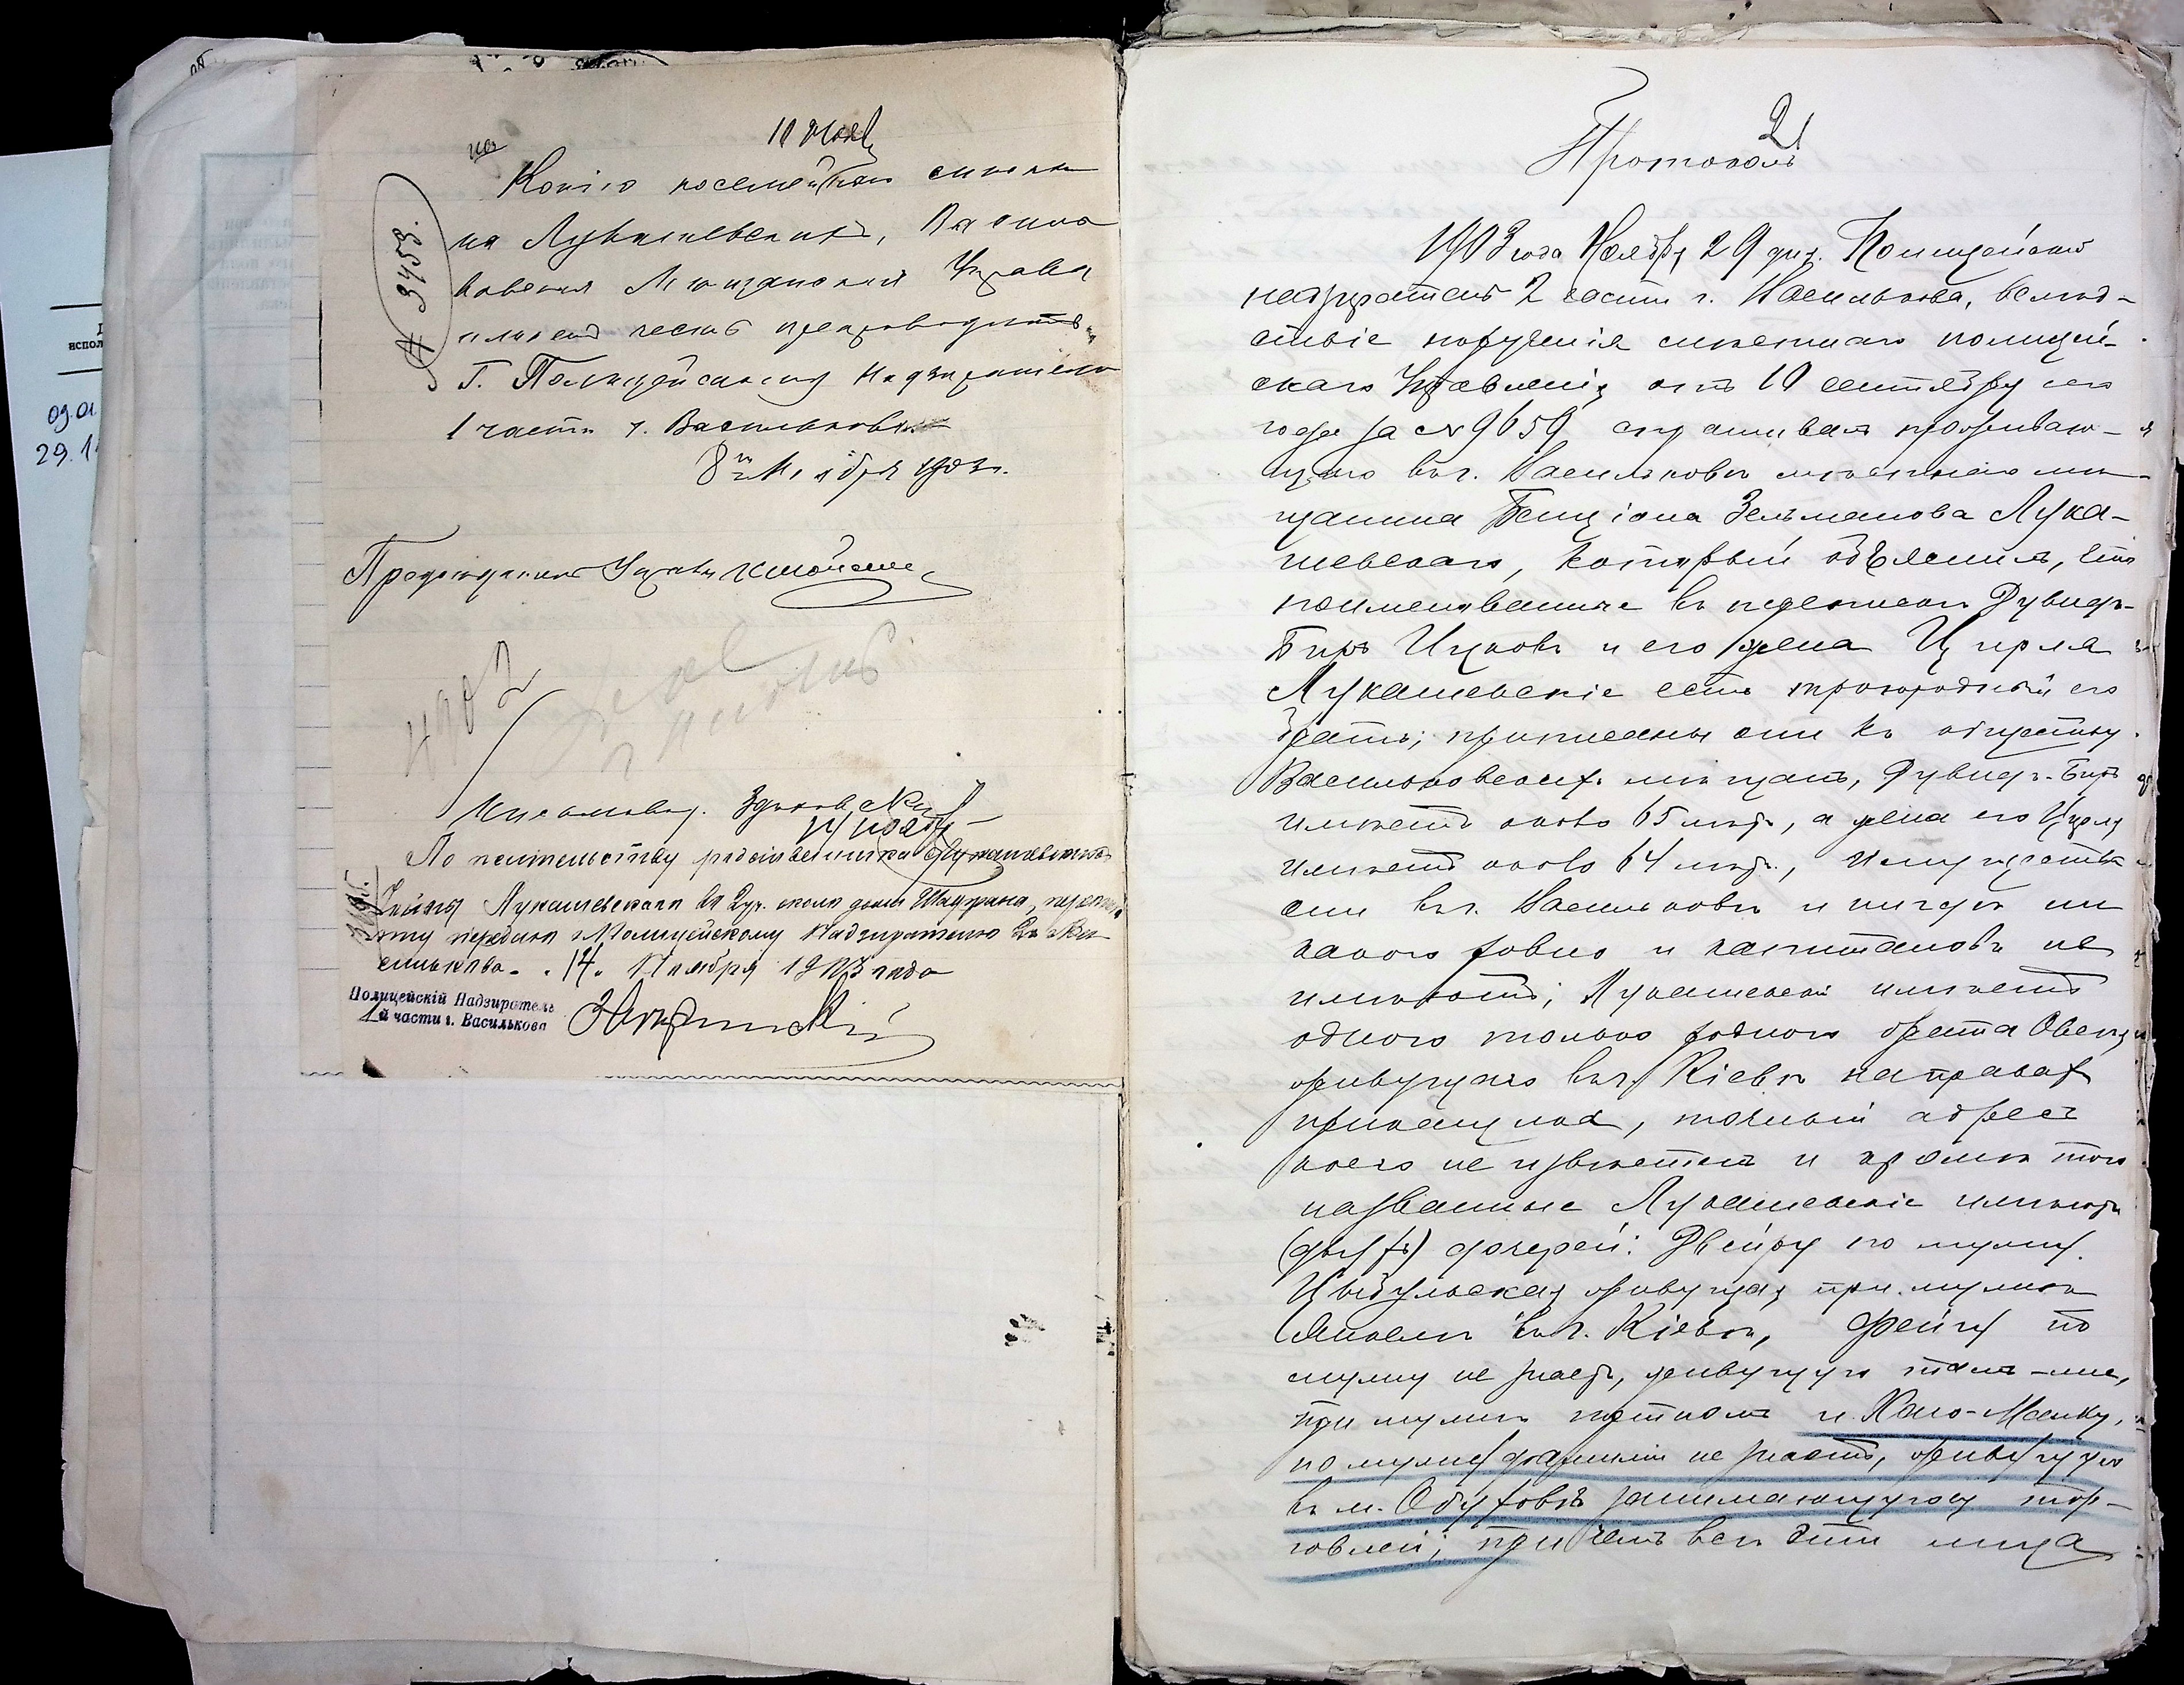 10 Нояб
Копію посемейнаго списка
на Лукашевскихъ, Василь
ковская Мѣщанская Управа
имѣетъ честь препроводить
Г. Полицейскому Надзирателю
1 части г. Василькова
8 го Ноября 1903 г.
№ 3453.
Предсѣдатель Управы
4902
Письмовод.
14 нояб
По жительству родственника Лукашевскихъ
Лукашевскаго во 2 уч. около дома
передаю г. Полицейскому Надзирателю
силькова. "14" Ноября 1903 года
Полицейскій Надзиратель
1й части г. Василькова
09.01
29.1
испол
21
Протоколъ
1903 года Ноября 29 дня. Полицейскій
надзиратель 2 части г. Василькова, вслѣд-
ствіе порученія мѣстнаго полицей-
скаго Управленія отъ 10 сентября сего
года за № 9659 спрашивалъ прожива-
ющаго въ г. Васильковѣ мѣстнаго мѣ-
щанина Бенціона Зельманова Лука-
шевскаго, который объяснилъ, что
поименованные въ перепискѣ Дувидъ-
Беръ Ицковъ и его жена Цирля
Лукашевскіе есть троюродный его
братъ; приписаны они къ обществу
Васильковскихъ мѣщанъ, Дувидъ-Беръ
имѣетъ около 65 лѣтъ, а жена его Цирля
имѣетъ около 64 лѣтъ, имущества
они въ г. Васильковѣ и нигдѣ ни
какого ровно и капиталовъ не
имѣютъ; Лукашевскій имѣетъ
одного только родного брата
живущаго въ г. Кіевѣ на правахъ
прикащика, точный адресъ
коего не извѣстенъ и кромѣ того
названные Лукашевскіе имѣютъ
дочерей: Двейру по мужу
Цыбульская живущая при мужѣ
въ г. Кіевѣ, Фейгу по
мужу не знаетъ, живущую тамъ-же,
при мужѣ портномъ и Хаю-Малку,
по мужу фамиліи не знаетъ, живущую
въ м. Обуховѣ занимающуюся тор-
говлей; при чемъ всѣ эти лица